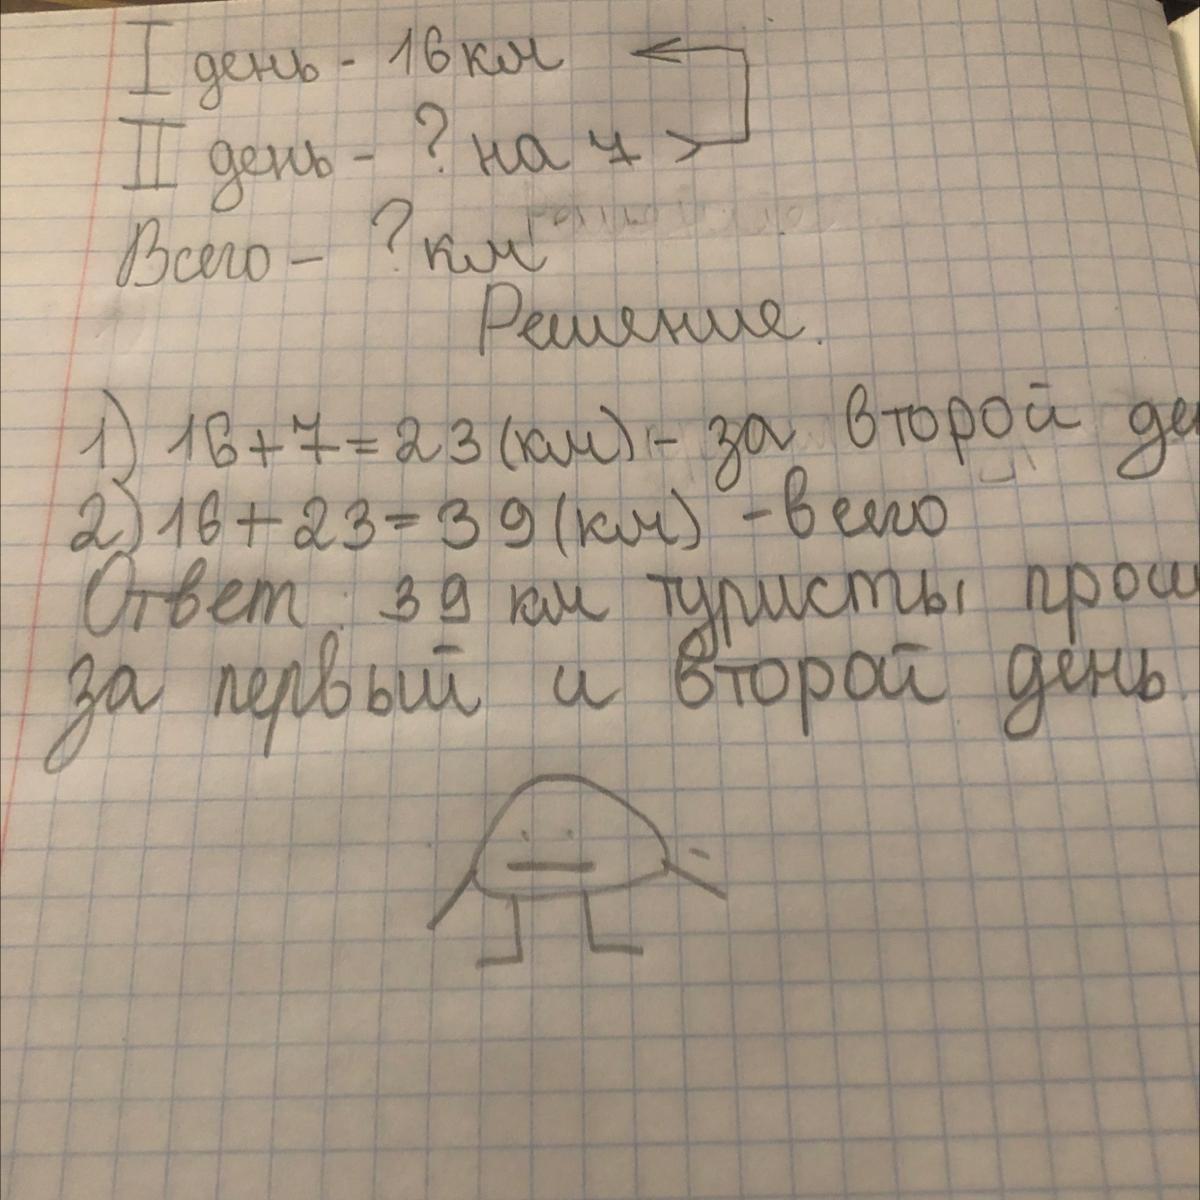 I день - 16 км
II день - ? на 7 >
Всего - ? км
Решение.
1) 16+7=23(км) - за второй де
2) 16+23=39(км) - всего
Ответ: 39 км туристы прош
за первый и второй день.